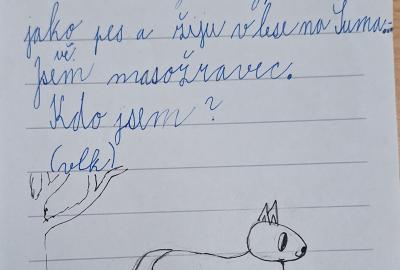 jako pes a žiju v lese na Šuma..
vě.
Jsem masožravec.
Kdo jsem?
(vlk)